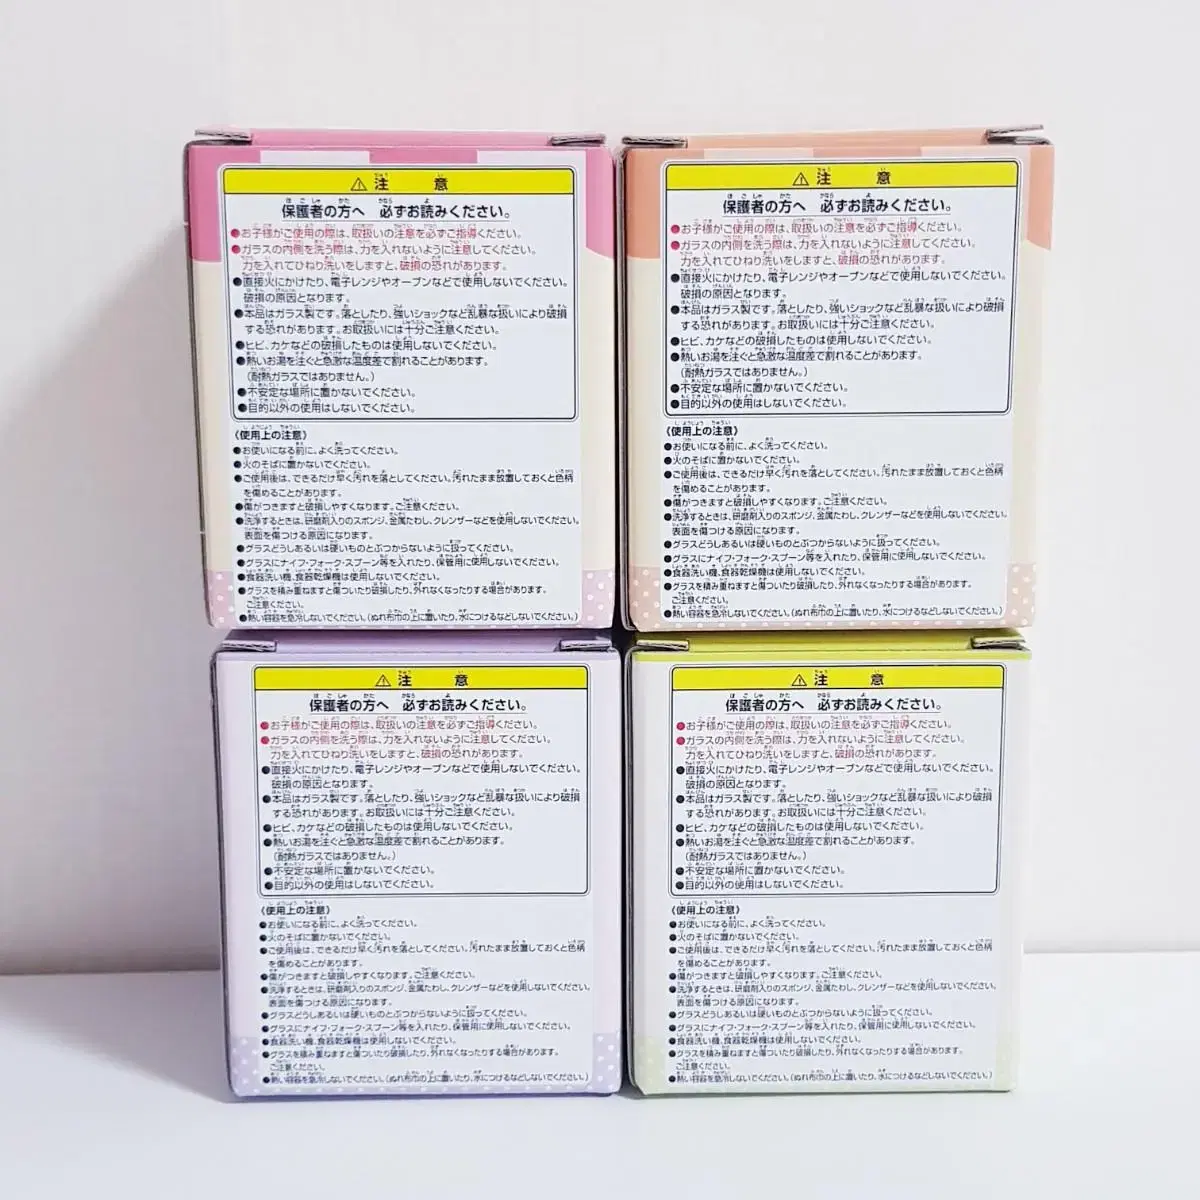 ⚠注意
保護者の方へ 必ずお読みください。
●お子様がご使用の際は、取扱いの注意を必ずご指導ください。
●ガラスの内側を洗う際は、力を入れないように注意してください。
力を入れてひねり洗いをしますと、破損の恐れがあります。
●直接火にかけたり、電子レンジやオーブンなどで使用しないでください。
破損の原因となります。
●本品はガラス製です。落としたり、強いショックなど乱暴な扱いにより破損
する恐れがあります。お取扱いには十分ご注意ください。
●ヒビ、カケなどの破損したものは使用しないでください。
●熱いお湯を注ぐと急激な温度差で割れることがあります。
(耐熱ガラスではありません。)
●不安定な場所に置かないでください。
●目的以外の使用はしないでください。
《使用上の注意》
●お使いになる前に、よく洗ってください。
●火のそばに置かないでください。
●ご使用後は、できるだけ早く汚れを落としてください。汚れたまま放置しておくと色柄
を傷めることがあります。
●傷がつきますと破損しやすくなります。ご注意ください。
●洗浄するときは、研磨剤入りのスポンジ、金属たわし、クレンザーなどを使用しないでください。
表面を傷つける原因になります。
●グラスどうしあるいは硬いものとぶつからないように扱ってください。
●グラスにナイフ・フォーク・スプーン等を入れたり、保管用に使用しないでください。
●食器洗い機、食器乾燥機は使用しないでください。
●グラスを積み重ねますと傷ついたり破損したり、外れなくなったりする場合があります。
ご注意ください。
●熱い容器を急冷しないでください。(ぬれ布巾の上に置いたり、水につけるなどしないでください。)
⚠注意
保護者の方へ 必ずお読みください。
●お子様がご使用の際は、取扱いの注意を必ずご指導ください。
●ガラスの内側を洗う際は、力を入れないように注意してください。
力を入れてひねり洗いをしますと、破損の恐れがあります。
●直接火にかけたり、電子レンジやオーブンなどで使用しないでください。
破損の原因となります。
●本品はガラス製です。落としたり、強いショックなど乱暴な扱いにより破損
する恐れがあります。お取扱いには十分ご注意ください。
●ヒビ、カケなどの破損したものは使用しないでください。
●熱いお湯を注ぐと急激な温度差で割れることがあります。
(耐熱ガラスではありません。)
●不安定な場所に置かないでください。
●目的以外の使用はしないでください。
《使用上の注意》
●お使いになる前に、よく洗ってください。
●火のそばに置かないでください。
●ご使用後は、できるだけ早く汚れを落としてください。汚れたまま放置しておくと色柄
を傷めることがあります。
●傷がつきますと破損しやすくなります。ご注意ください。
●洗浄するときは、研磨剤入りのスポンジ、金属たわし、クレンザーなどを使用しないでください。
表面を傷つける原因になります。
●グラスどうしあるいは硬いものとぶつからないように扱ってください。
●グラスにナイフ・フォーク・スプーン等を入れたり、保管用に使用しないでください。
●食器洗い機、食器乾燥機は使用しないでください。
●グラスを積み重ねますと傷ついたり破損したり、外れなくなったりする場合があります。
ご注意ください。
●熱い容器を急冷しないでください。(ぬれ布巾の上に置いたり、水につけるなどしないでください。)
⚠注意
保護者の方へ 必ずお読みください。
●お子様がご使用の際は、取扱いの注意を必ずご指導ください。
●ガラスの内側を洗う際は、力を入れないように注意してください。
力を入れてひねり洗いをしますと、破損の恐れがあります。
●直接火にかけたり、電子レンジやオーブンなどで使用しないでください。
破損の原因となります。
●本品はガラス製です。落としたり、強いショックなど乱暴な扱いにより破損
する恐れがあります。お取扱いには十分ご注意ください。
●ヒビ、カケなどの破損したものは使用しないでください。
●熱いお湯を注ぐと急激な温度差で割れることがあります。
(耐熱ガラスではありません。)
●不安定な場所に置かないでください。
●目的以外の使用はしないでください。
《使用上の注意》
●お使いになる前に、よく洗ってください。
●火のそばに置かないでください。
●ご使用後は、できるだけ早く汚れを落としてください。汚れたまま放置しておくと色柄
を傷めることがあります。
●傷がつきますと破損しやすくなります。ご注意ください。
●洗浄するときは、研磨剤入りのスポンジ、金属たわし、クレンザーなどを使用しないでください。
表面を傷つける原因になります。
●グラスどうしあるいは硬いものとぶつからないように扱ってください。
●グラスにナイフ・フォーク・スプーン等を入れたり、保管用に使用しないでください。
●食器洗い機、食器乾燥機は使用しないでください。
●グラスを積み重ねますと傷ついたり破損したり、外れなくなったりする場合があります。
ご注意ください。
●熱い容器を急冷しないでください。(ぬれ布巾の上に置いたり、水につけるなどしないでください。)
⚠注意
保護者の方へ 必ずお読みください。
●お子様がご使用の際は、取扱いの注意を必ずご指導ください。
●ガラスの内側を洗う際は、力を入れないように注意してください。
力を入れてひねり洗いをしますと、破損の恐れがあります。
●直接火にかけたり、電子レンジやオーブンなどで使用しないでください。
破損の原因となります。
●本品はガラス製です。落としたり、強いショックなど乱暴な扱いにより破損
する恐れがあります。お取扱いには十分ご注意ください。
●ヒビ、カケなどの破損したものは使用しないでください。
●熱いお湯を注ぐと急激な温度差で割れることがあります。
(耐熱ガラスではありません。)
●不安定な場所に置かないでください。
●目的以外の使用はしないでください。
《使用上の注意》
●お使いになる前に、よく洗ってください。
●火のそばに置かないでください。
●ご使用後は、できるだけ早く汚れを落としてください。汚れたまま放置しておくと色柄
を傷めることがあります。
●傷がつきますと破損しやすくなります。ご注意ください。
●洗浄するときは、研磨剤入りのスポンジ、金属たわし、クレンザーなどを使用しないでください。
表面を傷つける原因になります。
●グラスどうしあるいは硬いものとぶつからないように扱ってください。
●グラスにナイフ・フォーク・スプーン等を入れたり、保管用に使用しないでください。
●食器洗い機、食器乾燥機は使用しないでください。
●グラスを積み重ねますと傷ついたり破損したり、外れなくなったりする場合があります。
ご注意ください。
●熱い容器を急冷しないでください。(ぬれ布巾の上に置いたり、水につけるなどしないでください。)